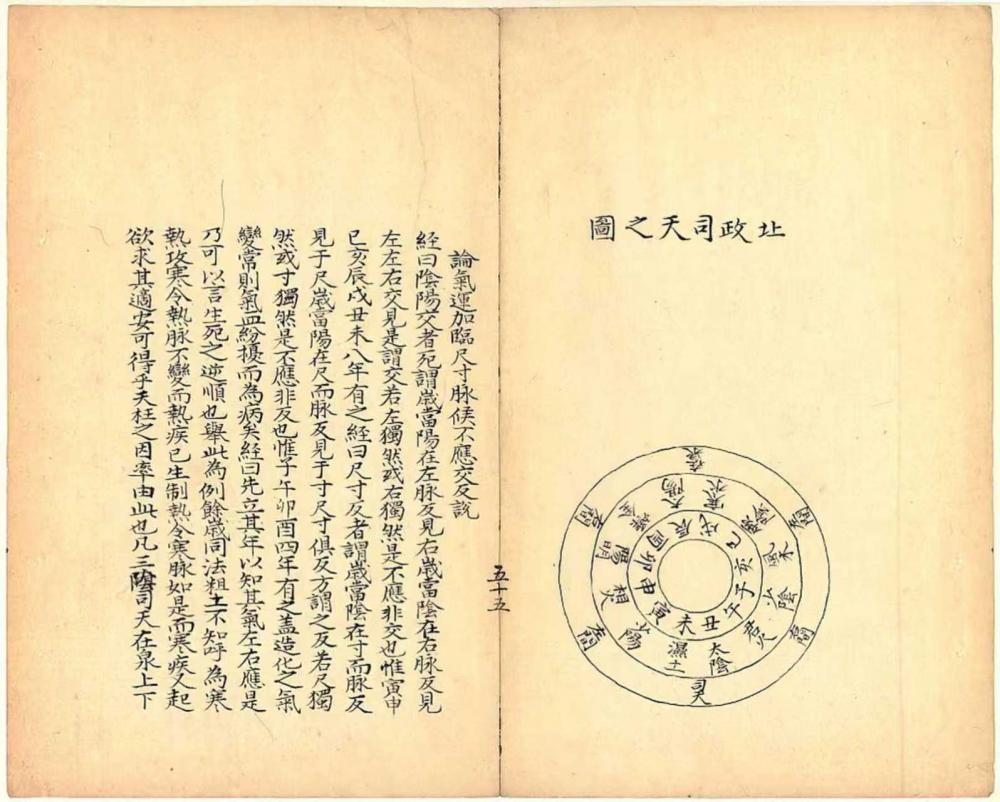 北政司天之圖
在泉
左間
右間
司天
左間
右間
太陽寒水
厥陰風木
少陰君火
太陰濕土
少陽相火
陽明燥金
辰戌
巳亥
子午
丑未
寅申
卯酉
五十五
論氣運加臨尺寸脉候不應交反説
經曰陰陽交者死謂歲當陽在左脉反見右歲當陰在右脉反見
左左右交見是謂交若左獨然或右獨然是不應非交也惟寅申
巳亥辰戌丑未八年有之經曰尺寸反者謂歲當陰在寸而脉反
見于尺歲當陽在尺而脉反見于寸尺寸俱反方謂之反若尺獨
然或寸獨然是不應非反也惟子午卯酉四年有之盖造化之氣
變常則氣血紛擾而為病矣經曰先立其年以知其氣左右應是
乃可以言生死之逆順也舉此為例餘歲同法粗土不知呼為寒
熱攻寒令熱脉不變而熱疾已生制熱令寒脉如是而寒疾又起
欲求其適安可得乎夭枉之因率由此也凡三陰司天在泉上下